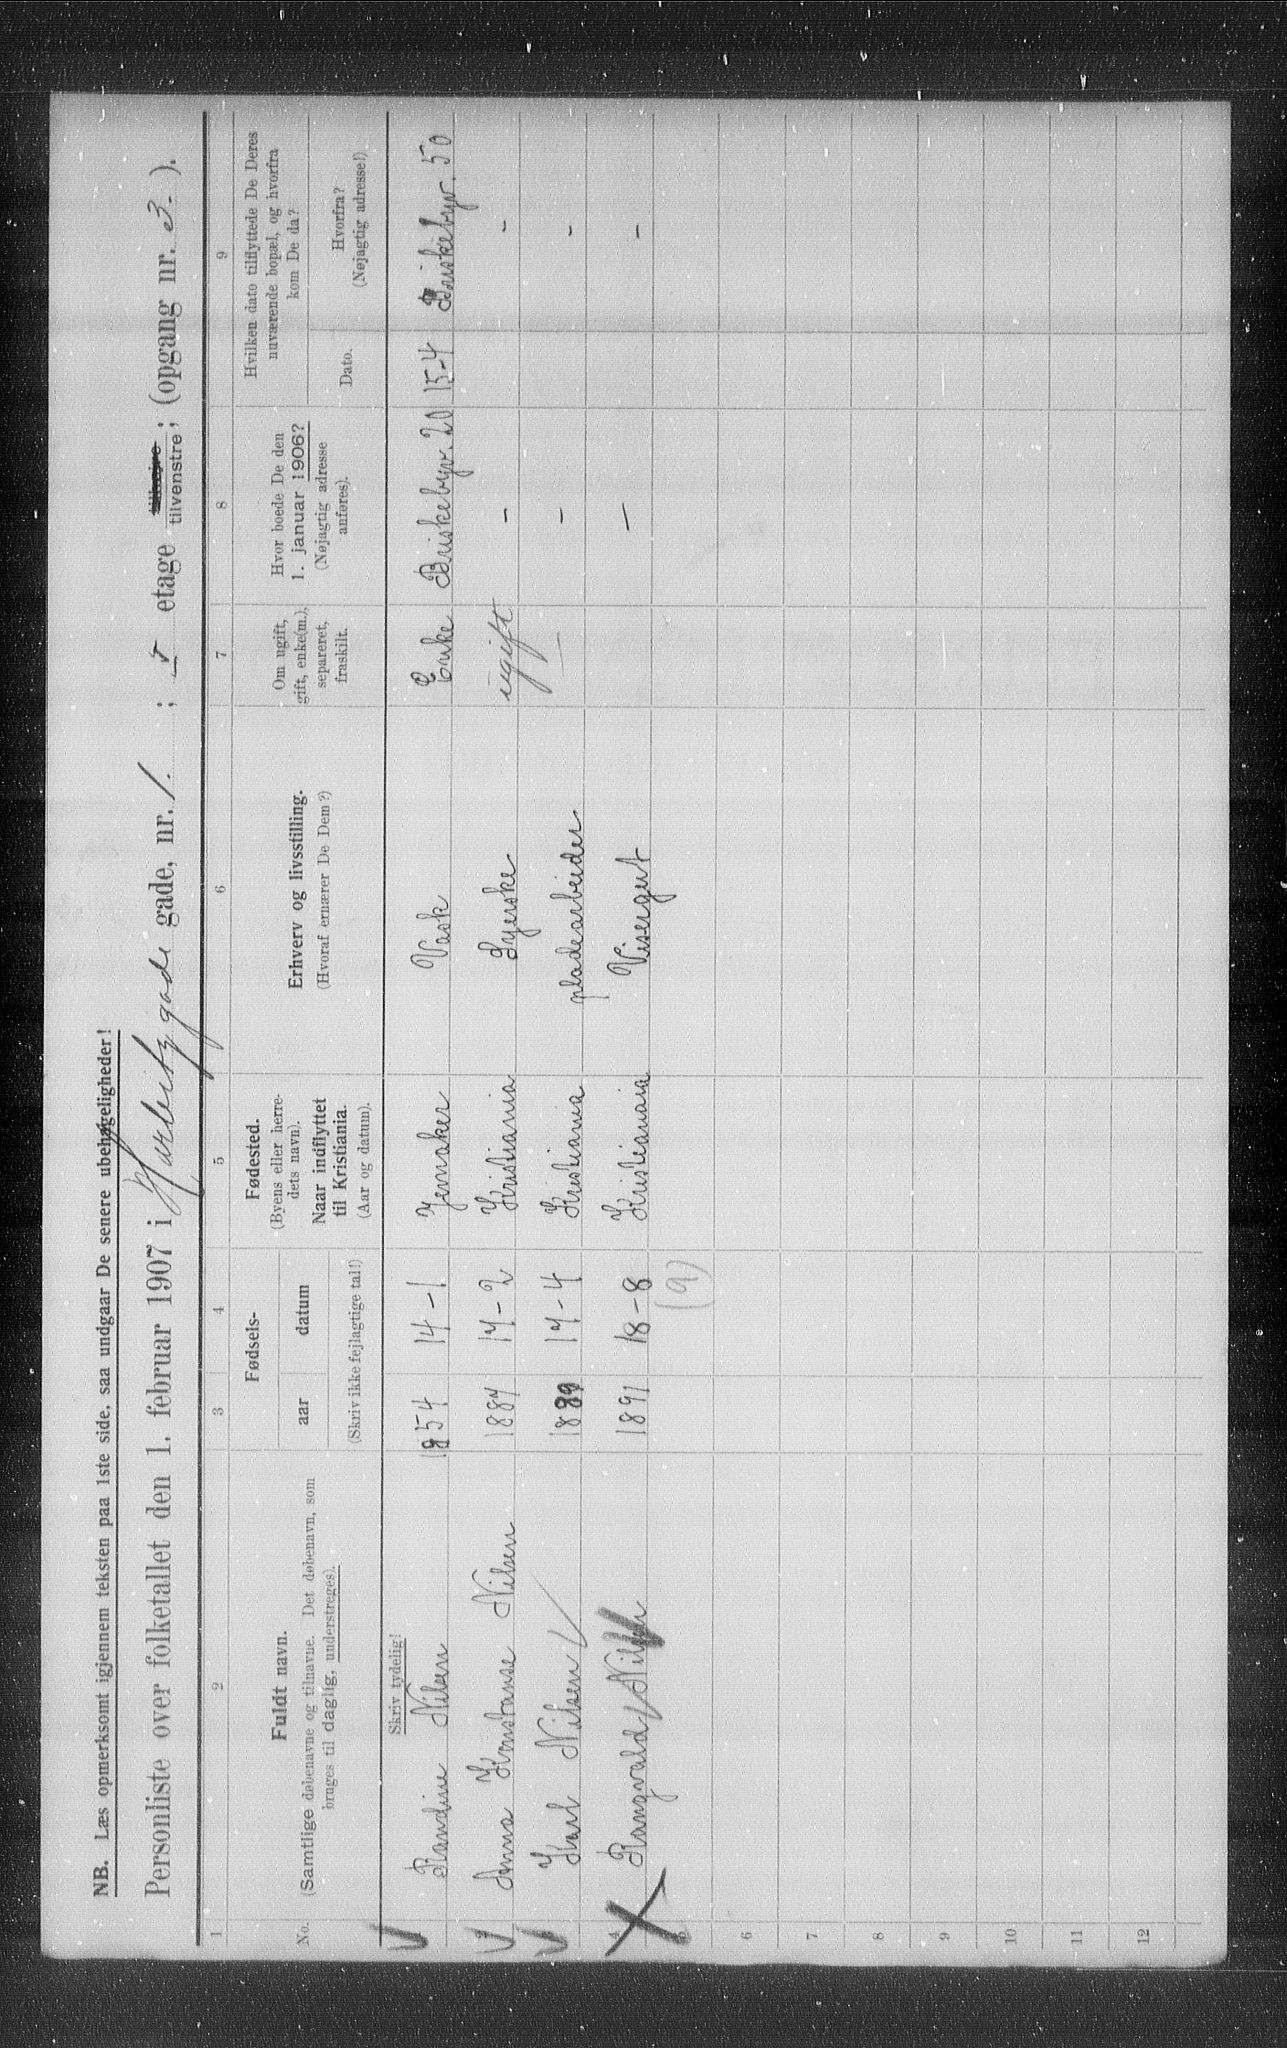 NB. Læs opmerksomt igjennem teksten paa 1ste side, saa undgaar De senere ubehageligheder!
Personliste over folketallet den 1. februar 1907 i Harbitz gade gade, nr. 1. ; etage tilhøjre tilvenstre; (opgang nr. ).
1 2 3 4 5 6 7 8 9
No.
Fuldt navn.
(Samtlige døbenavne og tilnavne. Det døbenavn, som
bruges til daglig, understreges).
Fødsels-
aar datum
(Skriv ikke fejlagtige tal!)
Fødested.
(Byens eller herre-
dets navn).
Naar indflyttet
til Kristiania.
(Aar og datum).
Erhverv og livsstilling.
(Hvoraf ernærer De Dem?)
Om ugift,
gift, enke(m.),
separeret,
fraskilt.
Hvor boede De den
1. januar 1906?
(Nøjagtig adresse
anføres).
Hvilken dato tilflyttede De Deres
nuværende bopæl, og hvorfra
kom De da?
Dato.
Hvorfra?
(Nøjagtig adresse!)
Skriv tydelig!
Randine Nilsen 1854 14-1 Jevnaker Vask Enke Briskebyv. 20 15-4 Briskebyv. 50
Anna Konstanse Nilsen 1887 17-2 Kristiania Syerske ugift - -
Karl Nilsen 1889 17-4 Kristiania pladearbeider — - -
4 Rangvald Nilsen 1891 18-8 Kristianaia Visergut — -
5 (9)
6
7
8
9
10
11
12